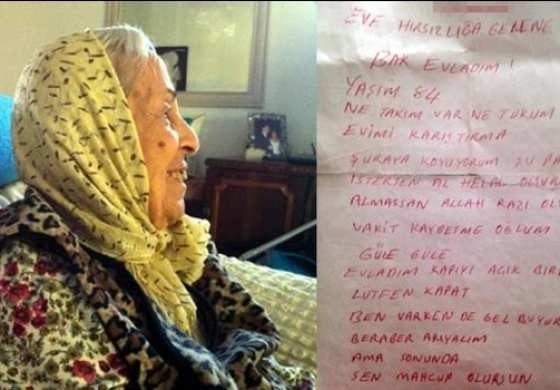 EVE HIRSIZLIĞA GELENE
BAK EVLADIM!
YAŞIM 84
NE TAKIM VAR NE TUKUM
EVİMİ KARIŞTIRMA
ŞURAYA KOYUYORUM ŞU
İSTERSEN AL HELAL
ALMASSAN ALLAH RAZI
VAKİT KAYBETME OĞLUM
GÜLE GÜLE
EVLADIM KAPIYI AÇIK
LÜTFEN KAPAT
BEN VARKEN DE GEL
BERABER ARIYALIM
AMA SONUNDA
SEN MAHCUP OLURSUN